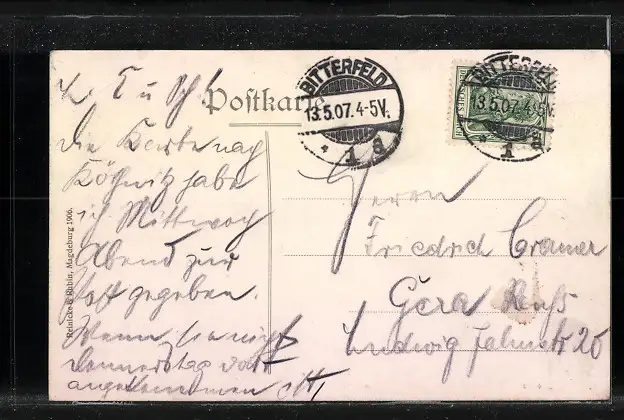 L. T u Sch!
Postkarte
BITTERFELD
13.5.07.4-5V.
* 1 a
BITTERFELD
13.5.07.4-5V.
1 a
Die Karte nach
habe
ich Mittwoch
Abend zur
Post gegeben.
Wenn sie nicht
Donnerstag dort
angekommen ist,
Herrn
Friedrich Cramer
Gera Reuß
Ludwig Jahnstr 20
Reinicke & Rubin, Magdeburg 1906.